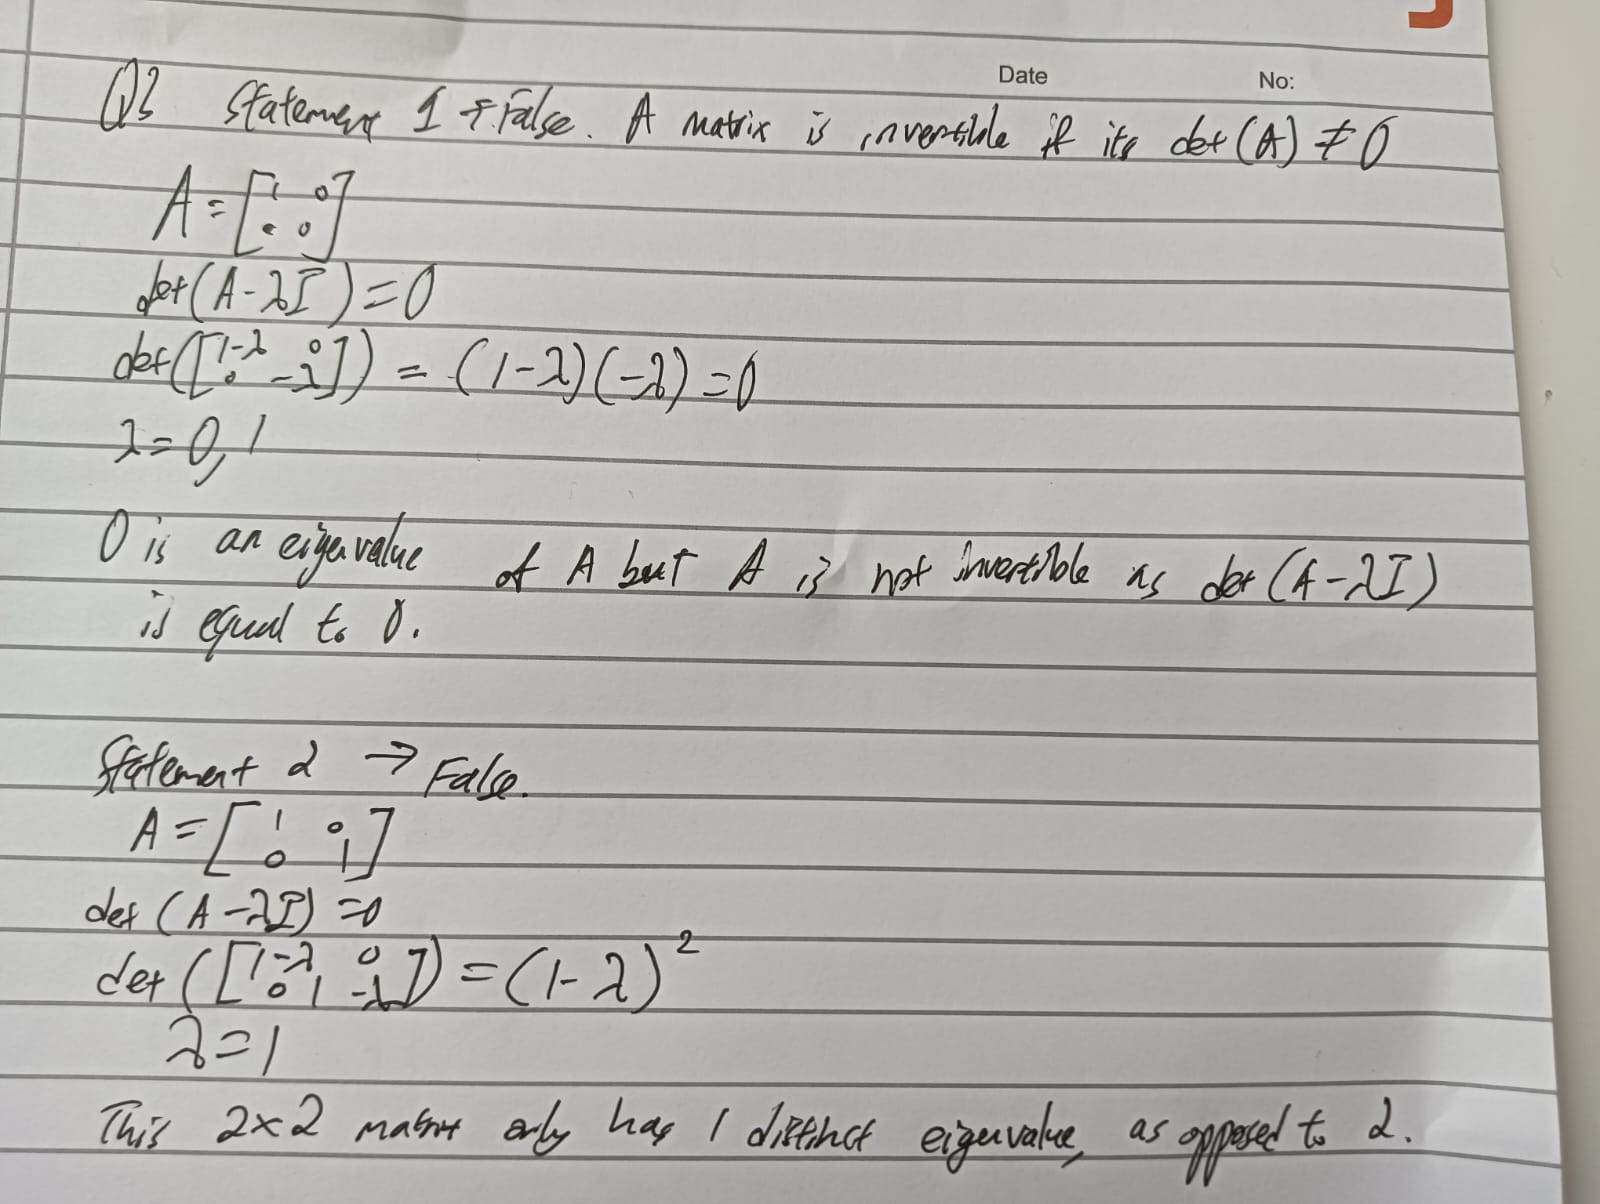 Date No:
Q2 Statement 1 → False. A matrix is invertible if its det(A) ≠ 0
A = [1 0
0 0]
det(A-λI)=0
det([1-λ 0
0 -λ]) = (1-λ)(-λ)=0
λ=0,1
0 is an eigenvalue of A but A is not invertible as det(A-λI)
is equal to 0.
Statement 2 → False.
A = [1 0
0 1]
det(A-λI)=0
det([1-λ 0
0 1-λ]) = (1-λ)²
λ=1
This 2×2 matrix only has 1 distinct eigenvalue, as opposed to 2.